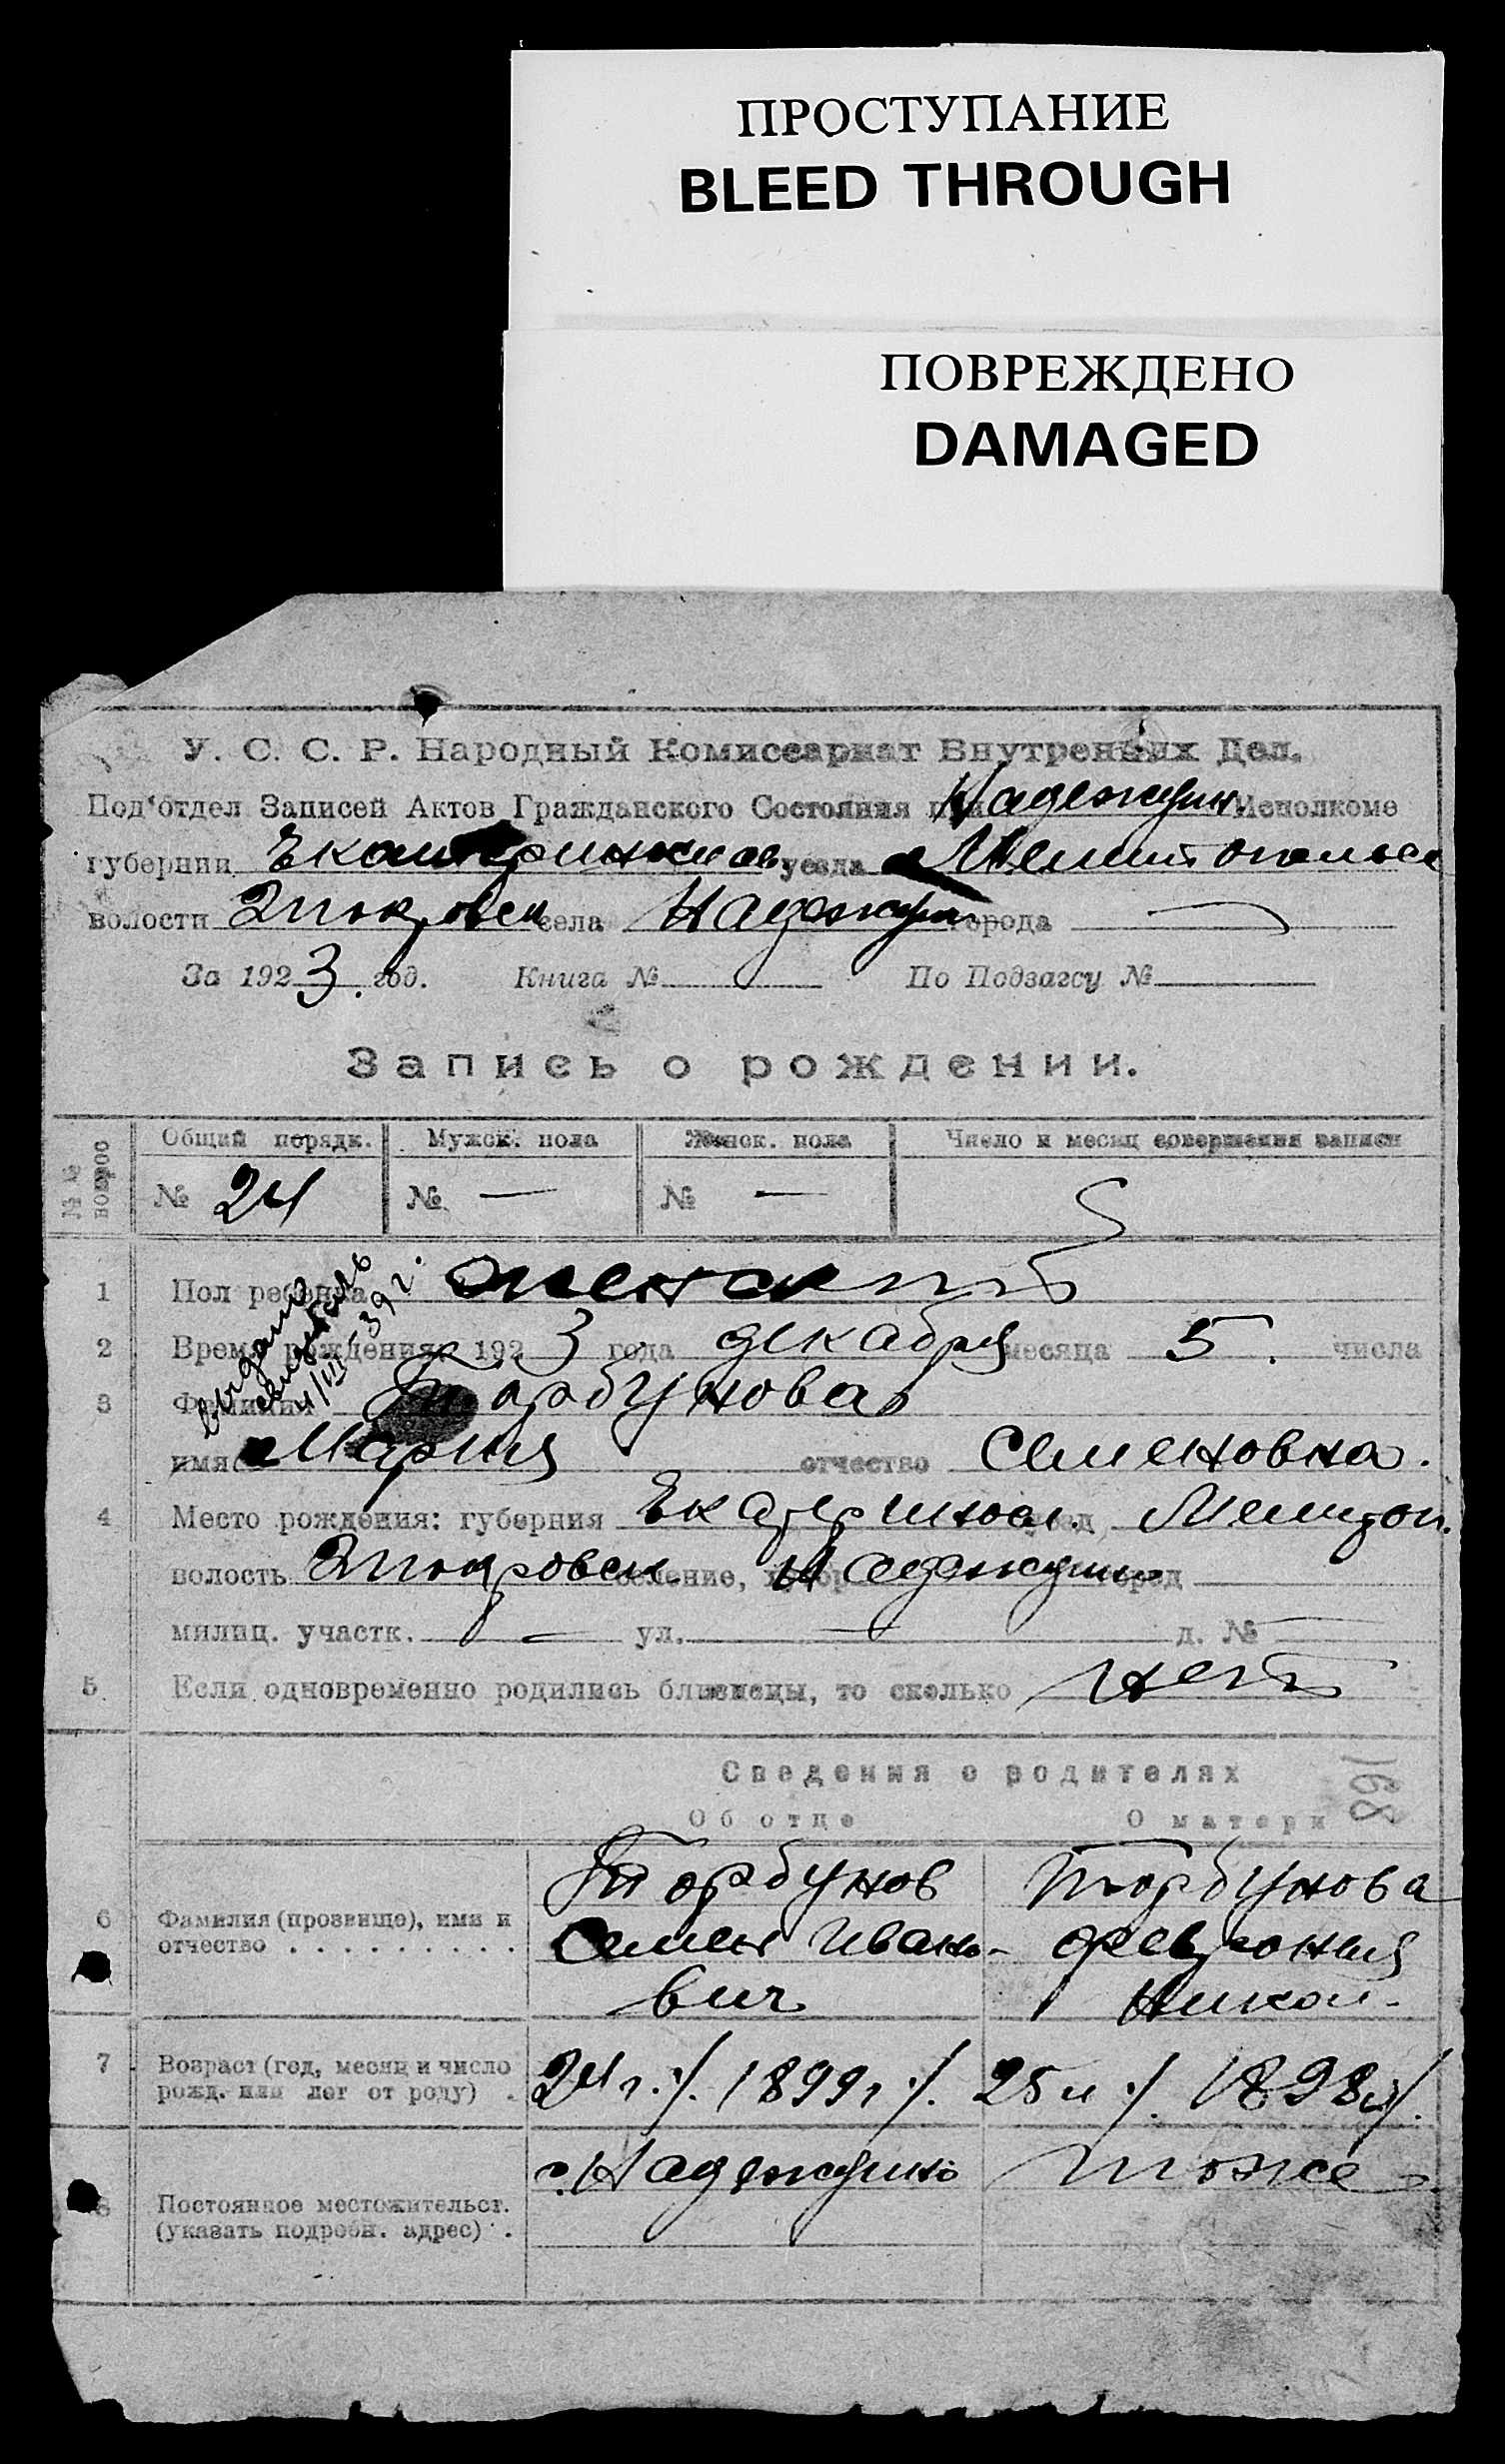 ПРОСТУПАНИЕ
BLEED THROUGH
ПОВРЕЖДЕНО
DAMAGED
У. С. С. Р. Народный Комиссариат Внутренних Дел.
Под'отдел Записей Актов Гражданского Состояния при Надеждин. Исполкоме
губернии Екатеринослав. уезда Мелитопольск
волости села Надеждин города —
За 1923 год. Книга № По Подзагсу №
Запись о рождении.
№№ вопрос
Общий порядк. Мужск. пола Женск. пола Число и месяц совершения записи
№ 24 № — № —
1 Пол ребенка женский
2 Время рождения: 1923 года декабря месяца 5. числа
3 Фамилия Торбунова
имя Мария отчество Семеновна.
выдано
4/III-39 г.
4 Место рождения: губерния Екатеринос. уезд Мелитоп.
волость селение, хутор Надеждино город
милиц. участк. — ул. — д. № —
5 Если одновременно родились близнецы, то сколько нет
168
Сведения о родителях
Об отце О матери
6 Фамилия (прозвище), имя и отчество Торбунов Семен Иванович Торбунова Феврония Никол.
7 Возраст (год, месяц и число рожд. или лет от роду) 24 г. /. 1899 г /. 25 л /. 1898 г/.
8 Постоянное местожительст. (указать подробн. адрес) с. Надеждино тоже